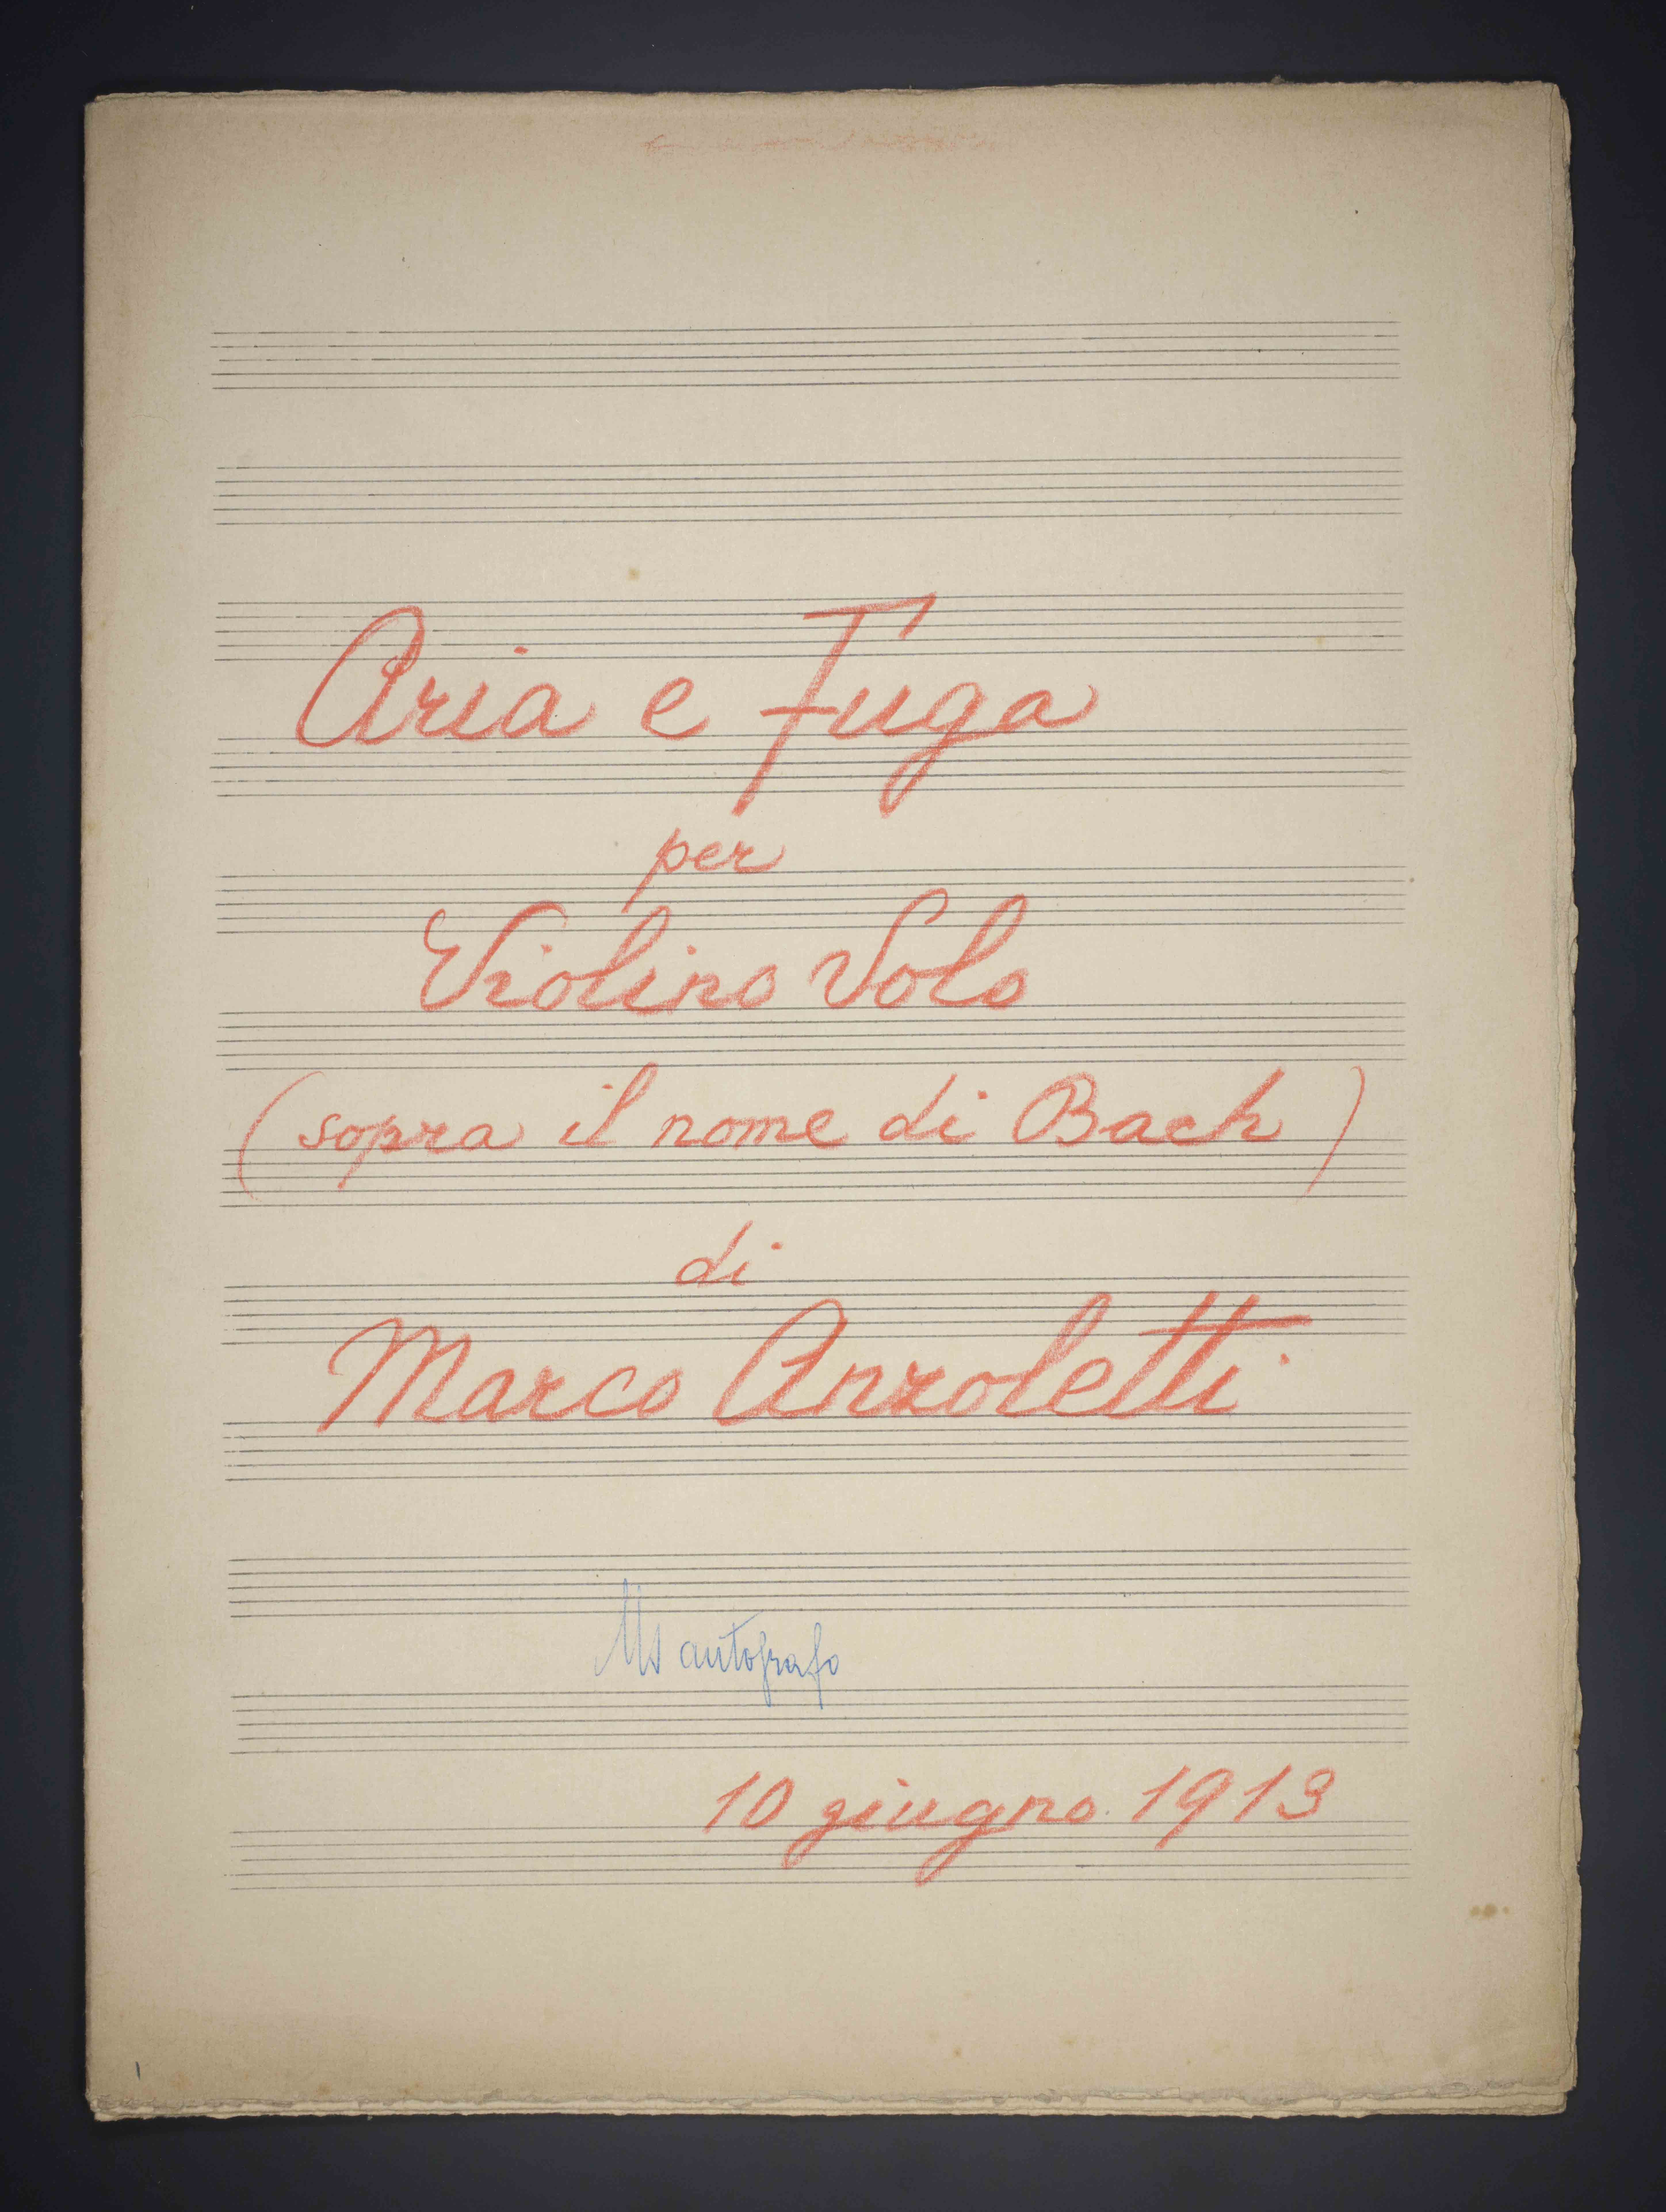 Aria e Fuga
per
Violino Solo
(sopra il nome di Bach)
di
Marco Anzoletti
Ms autografo
10 giugno 1913